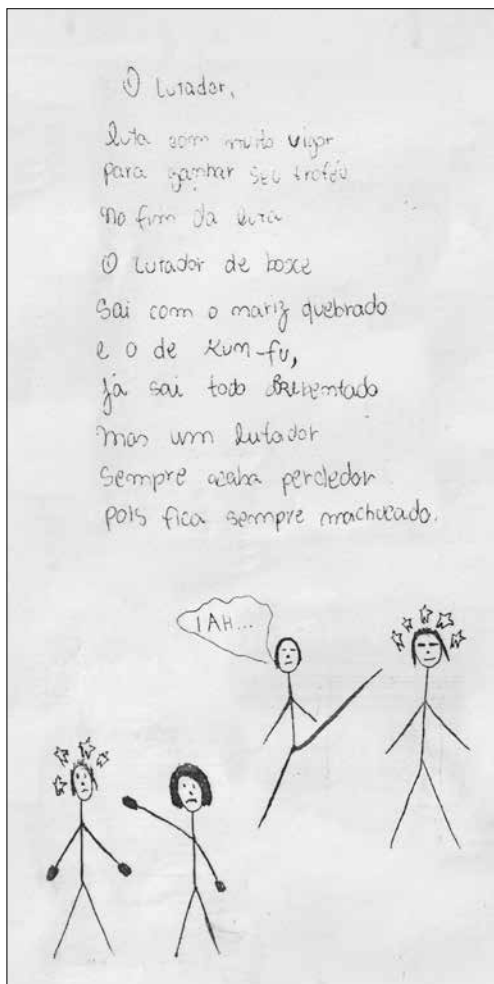 O Lutador,
luta com muito vigor
para ganhar seu troféu
No fim da luta
O Lutador de boxe
Sai com o nariz quebrado
e o de Kum-fu,
já sai todo arrebentado
mas um lutador
sempre acaba perdedor
pois fica sempre machucado.
IAH...